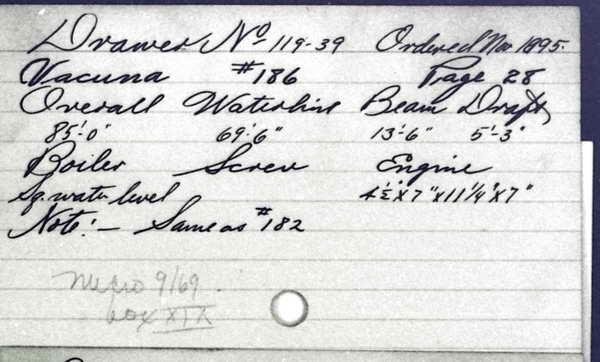 Drawer No 119-39 Ordered Nov 1895.
Vacuna #186 Page 28
Overall Waterline Beam Draft
85'-0" 69'-6" 13'-6" 5'-3"
Boiler Screw Engine
Sq. water level 4½"x7"x11¼"x7"
Note:- Same as #182
9/69
Box XIX